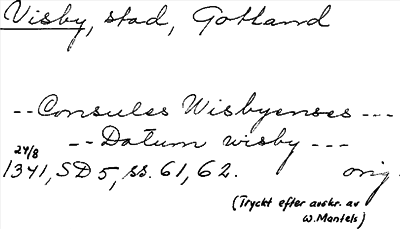 Visby, stad, Gotland
-- Consules Wisbyenses ---
-- Datum wisby ---
24/8
1341, SD 5, ss. 61, 62. orig.
(Tryckt efter avskr. av
W. Mantels)